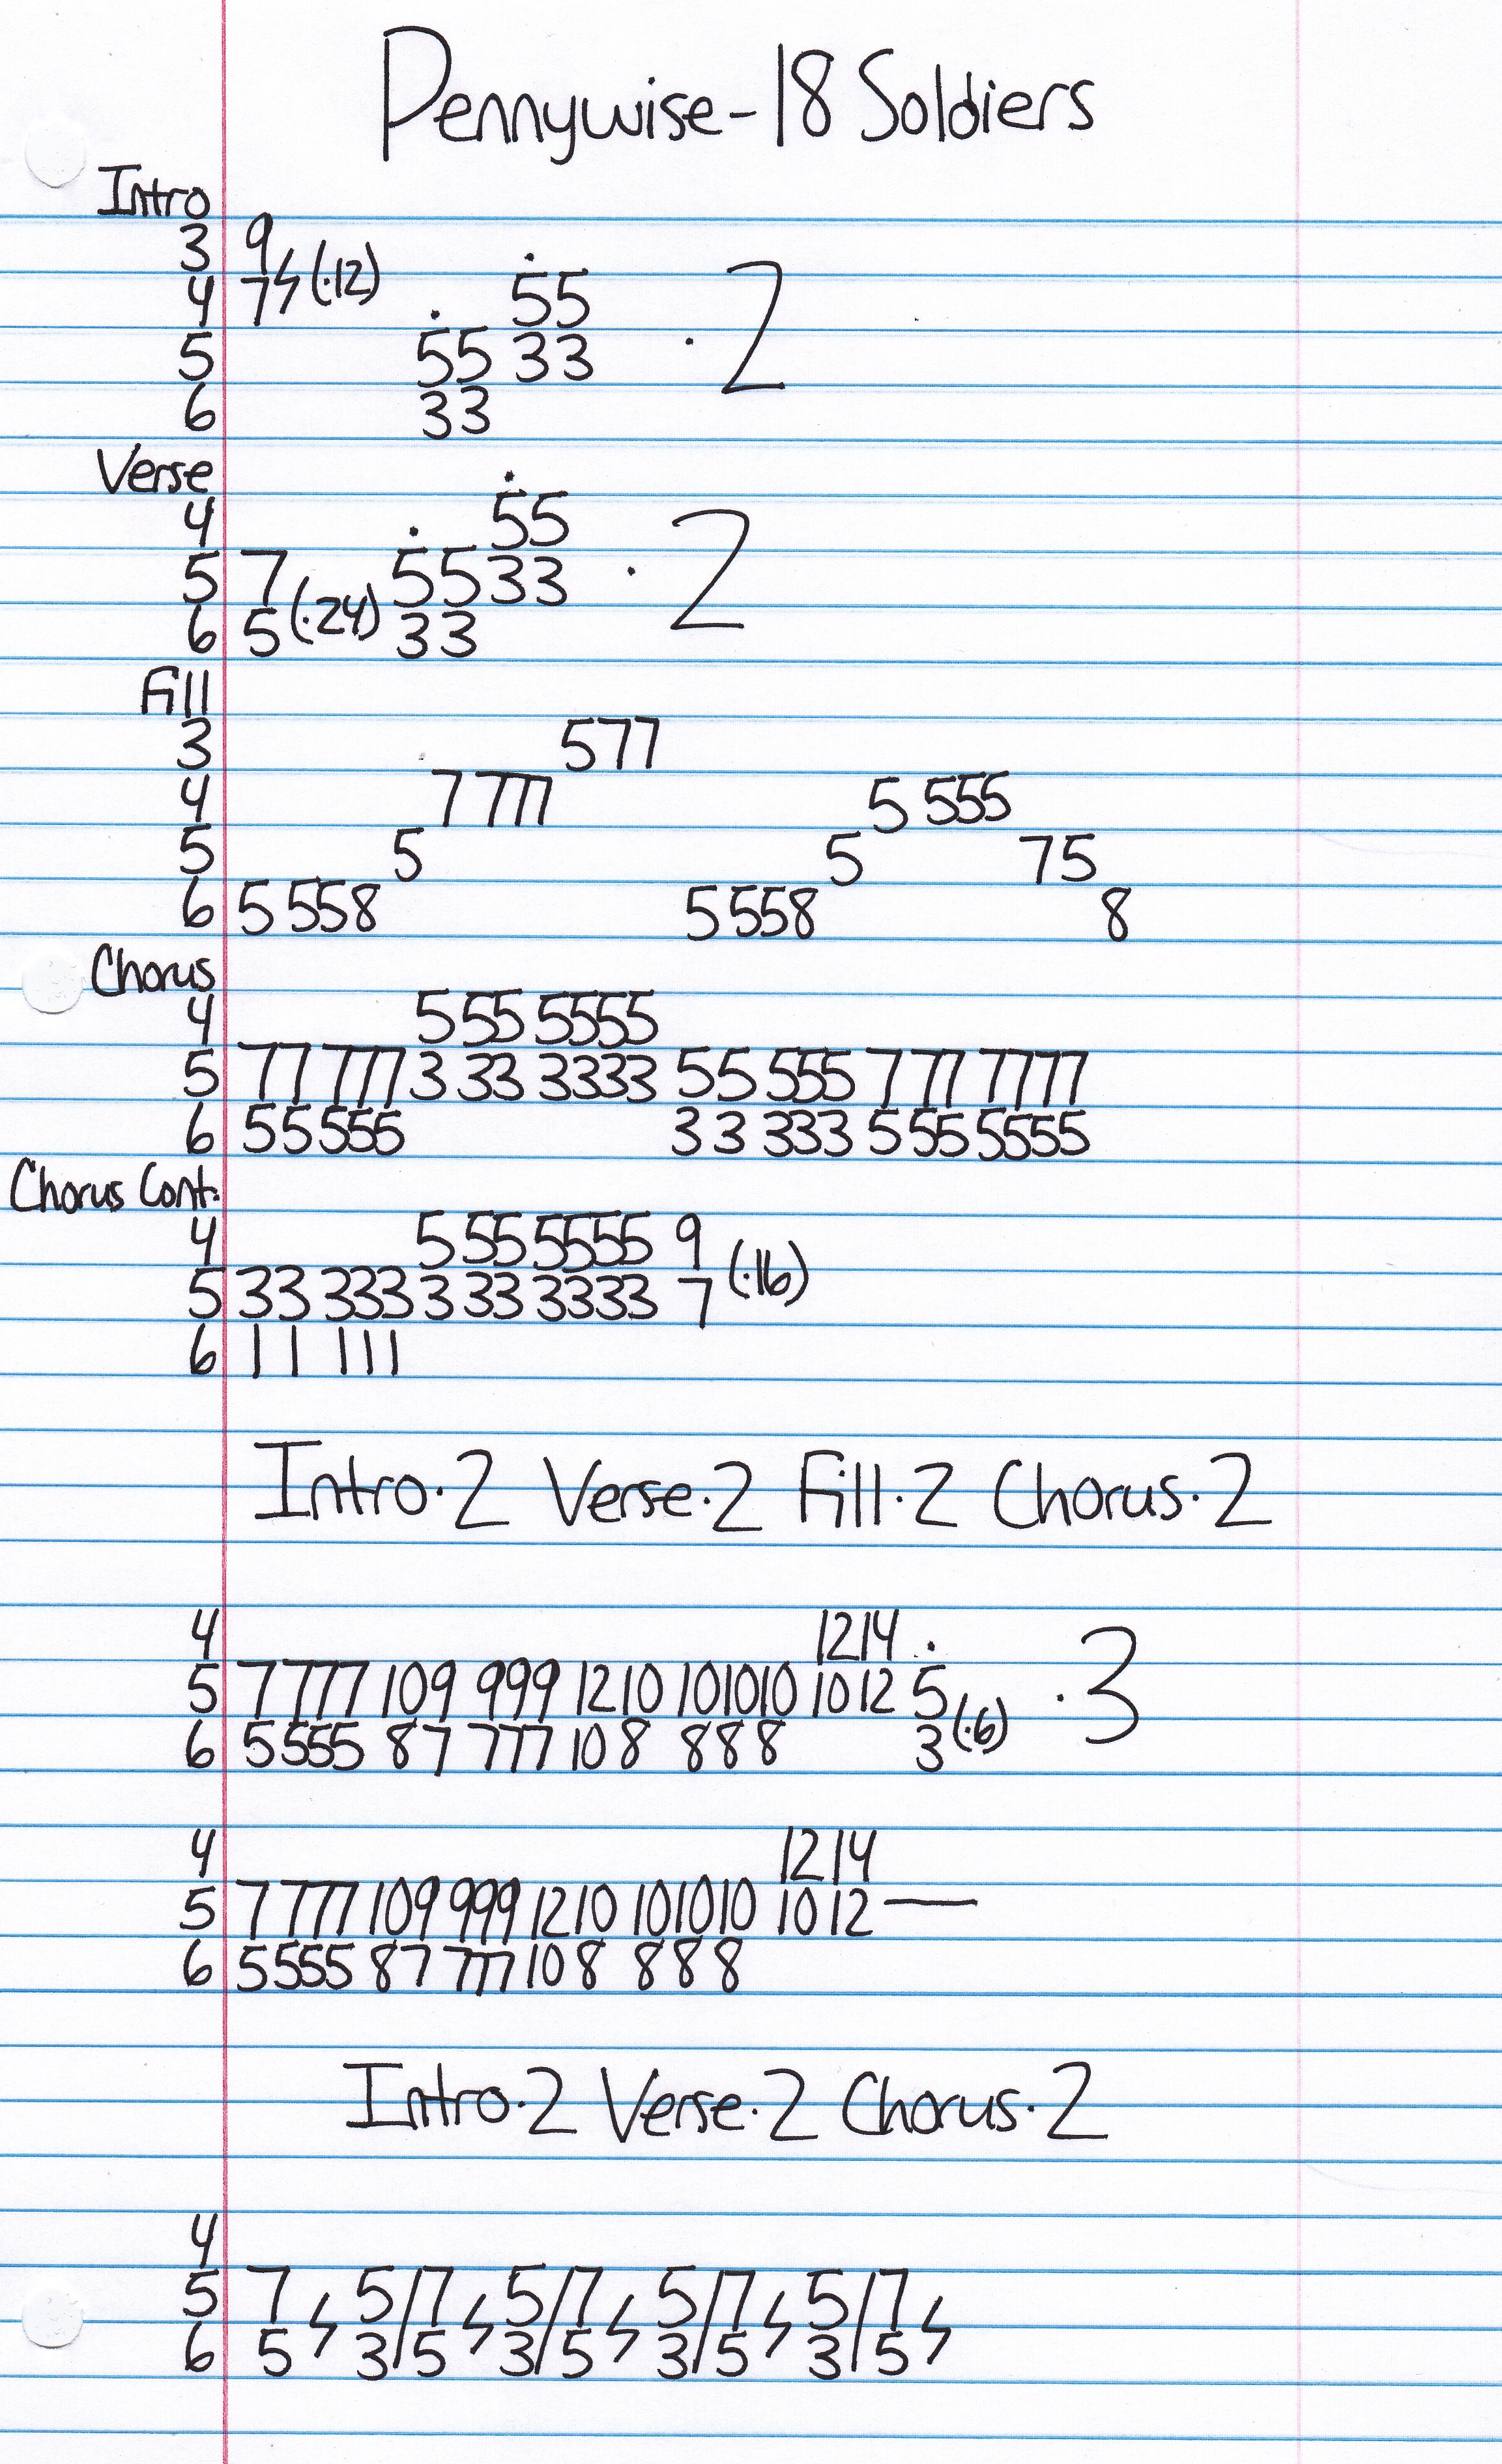 Pennywise-18 Soldiers
Intro
3 9
4 7ϟ(·12) 55
5 55 33 ·2
6 33
Verse
4 55
5 7 55 33 ·2
6 5(·24) 33
Fill
3 577
4 7 777 5 555
5 5 5 75
6 5 558 5 558 8
Chorus
4 5 555 5555
5 77 777 3 33 3333 55 555 7 777 7777
6 55 555 3 3 333 5 555 5555
Chorus Cont.
4 5 555 5555 9
5 33 333 3 33 3333 7 (·16)
6 1 1 111
Intro·2 Verse·2 Fill·2 Chorus·2
4 12 14
5 7 777 10 9 999 12 10 10 10 10 10 12 5 ·3
6 5 555 8 7 777 10 8 8 8 8 3(·6)
4 12 14
5 7 777 10 9 999 12 10 10 10 10 10 12 —
6 5 555 8 7 777 10 8 8 8 8
Intro·2 Verse·2 Chorus·2
4
5 7ϟ 5/7ϟ 5/7ϟ 5/7ϟ 5/7ϟ
6 5 3/5 3/5 3/5 3/5